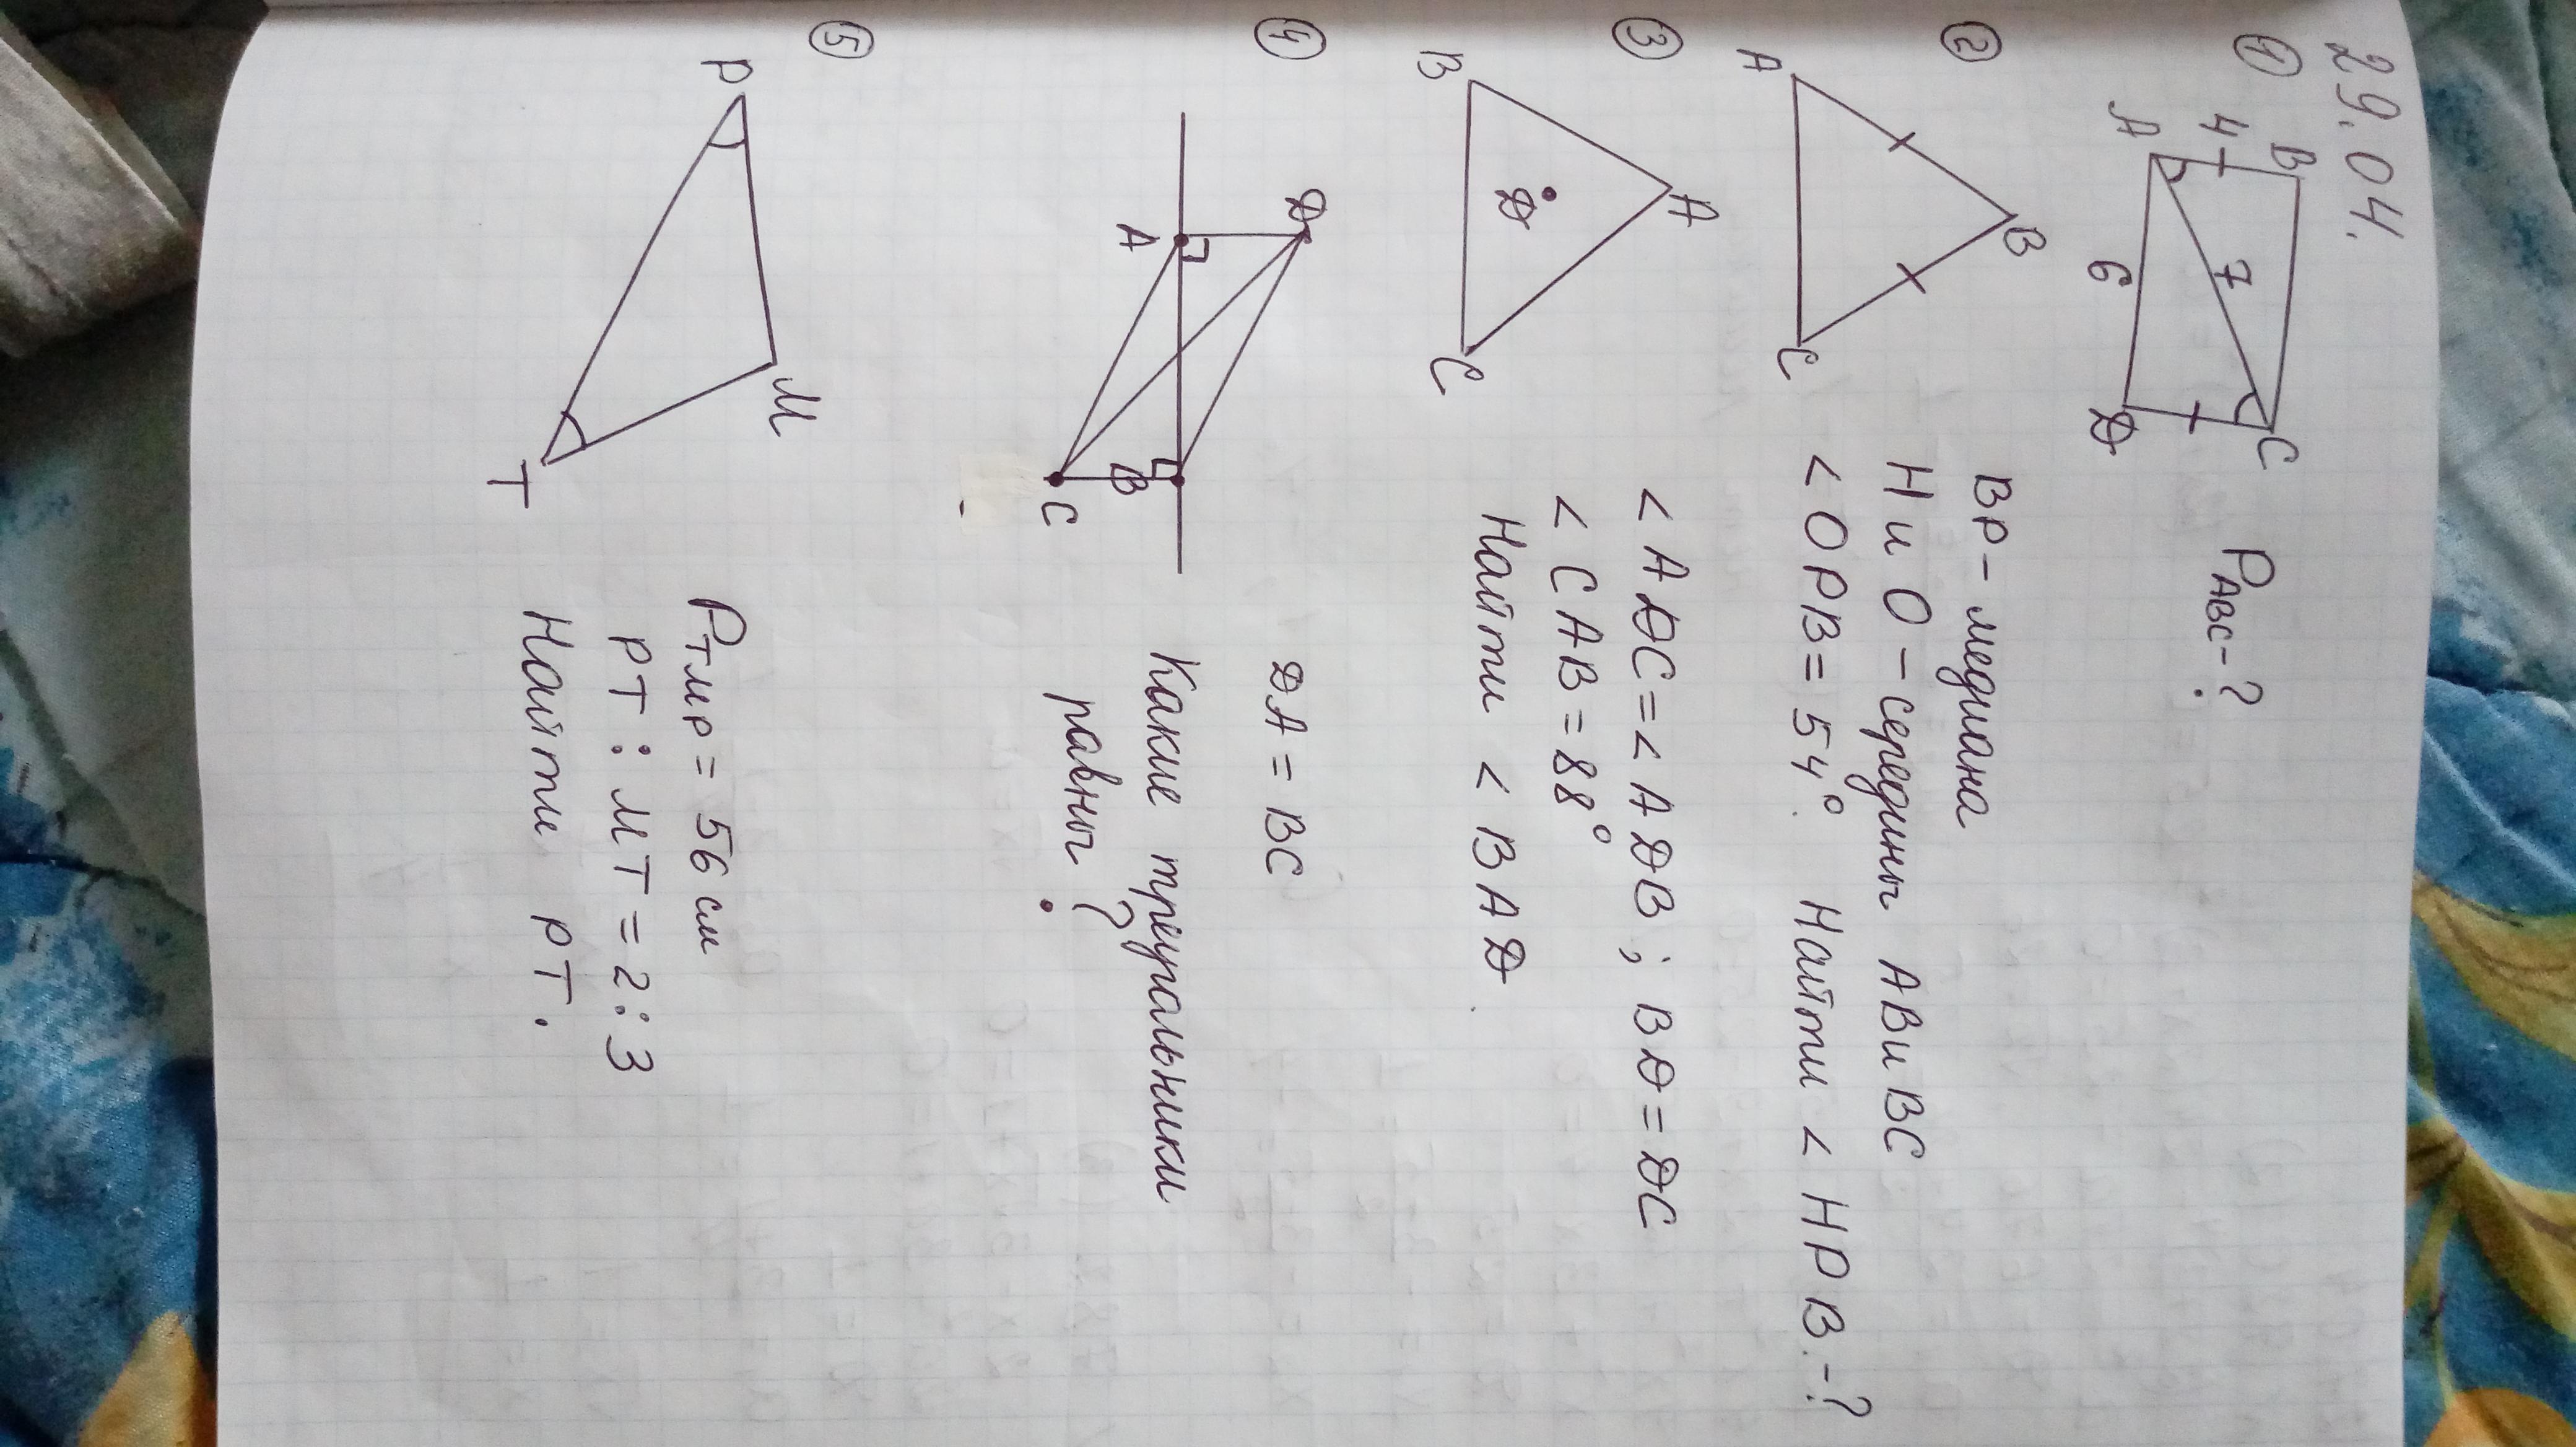 29.04.
① B C
4 7
A 6 D
P ABC-?
② B
A C
BP-медиана
H и O-середины AB и BC
< OPB=54°. Найти < HPB.-?
③ A
D
B C
< ADC=< ADB; BD=DC
< CAB=88°
Найти < BAD.
④ D
A B
C
DA = BC
Какие треугальники
равны?
⑤ M
P T
P ТМР = 56 см
PT : MT = 2:3
Найти PT.